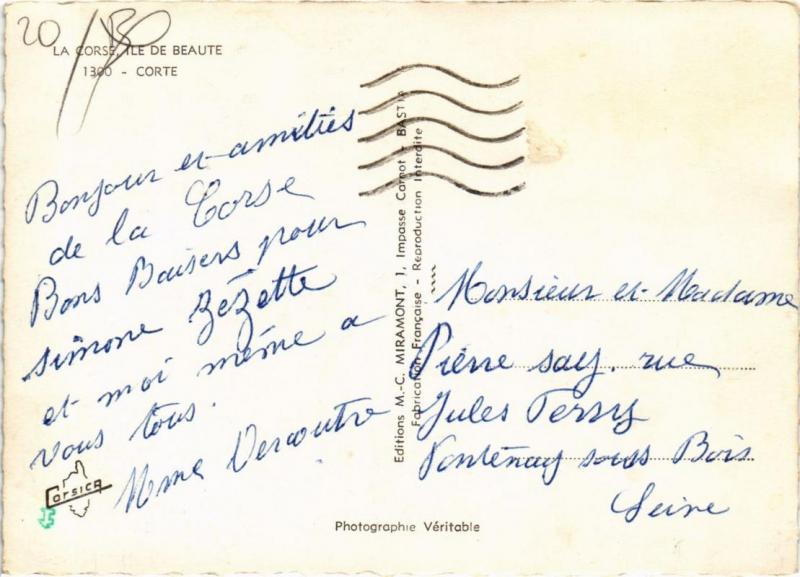 20
LA CORSE, ILE DE BEAUTE
1300 - CORTE
Bonjour et amitiés
de la Corse
Bons Baisers pour
Simone Zézette
et moi même a
vous tous.
Mme Vercoutre
Corsica
Editions M.-C. MIRAMONT, J, Impasse Carnot - BASTIA
Fabrication Française - Reproduction Interdite
Monsieur et Madame
Pierre say. rue
Jules Ferry
Fontenay sous Bois
Seine
Photographie Véritable